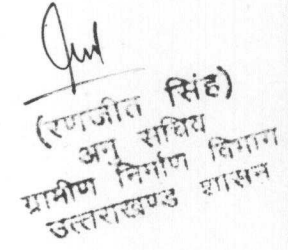 (रणजीत सिंह)
अनु सचिव
ग्रामीण निर्माण विभाग
उत्तराखण्ड शासन